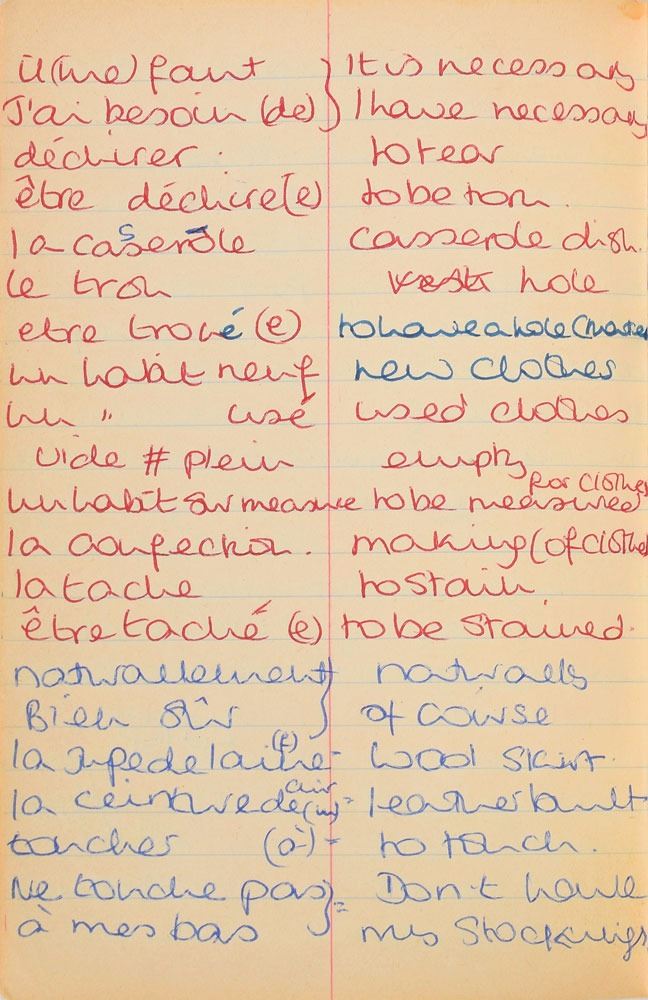 il (me) faut } It is necessary
J'ai besoin (de) } I have necessary
déchirer. to tear
être déchiré(e) to be torn.
la casserole casserole dish.
le trou hole
etre troué (e) to have a hole (make
un habit neuf new clothes
un " usé used clothes
vide # plein empty
un habit sur mesure to be measured for clothes
la confection. making (of clothes
la tache to stain
être taché (e) to be stained.
naturallement } naturally
Bien sûr } of course
la jupe de laine (f) - wool skirt.
la ceinture de cuir (m) = leather bault
toucher (à) - to touch.
Ne touche pas } = Don't have
à mes bas my stockings